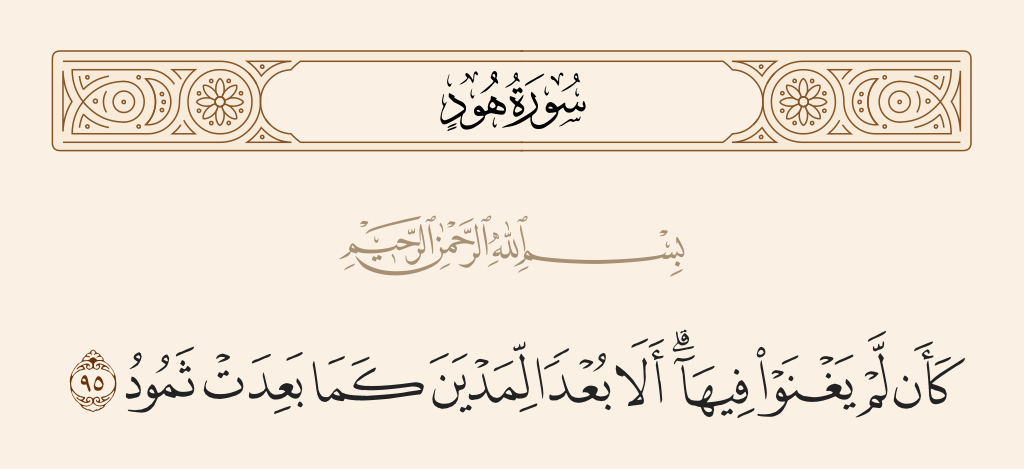 سُورَةُ هُودٍ
بِسْمِ ٱللَّهِ ٱلرَّحْمَٰنِ ٱلرَّحِيمِ
كَأَن لَّمْ يَغْنَوْا۟ فِيهَآ ۗ أَلَا بُعْدًا لِّمَدْيَنَ كَمَا بَعِدَتْ ثَمُودُ ٩٥